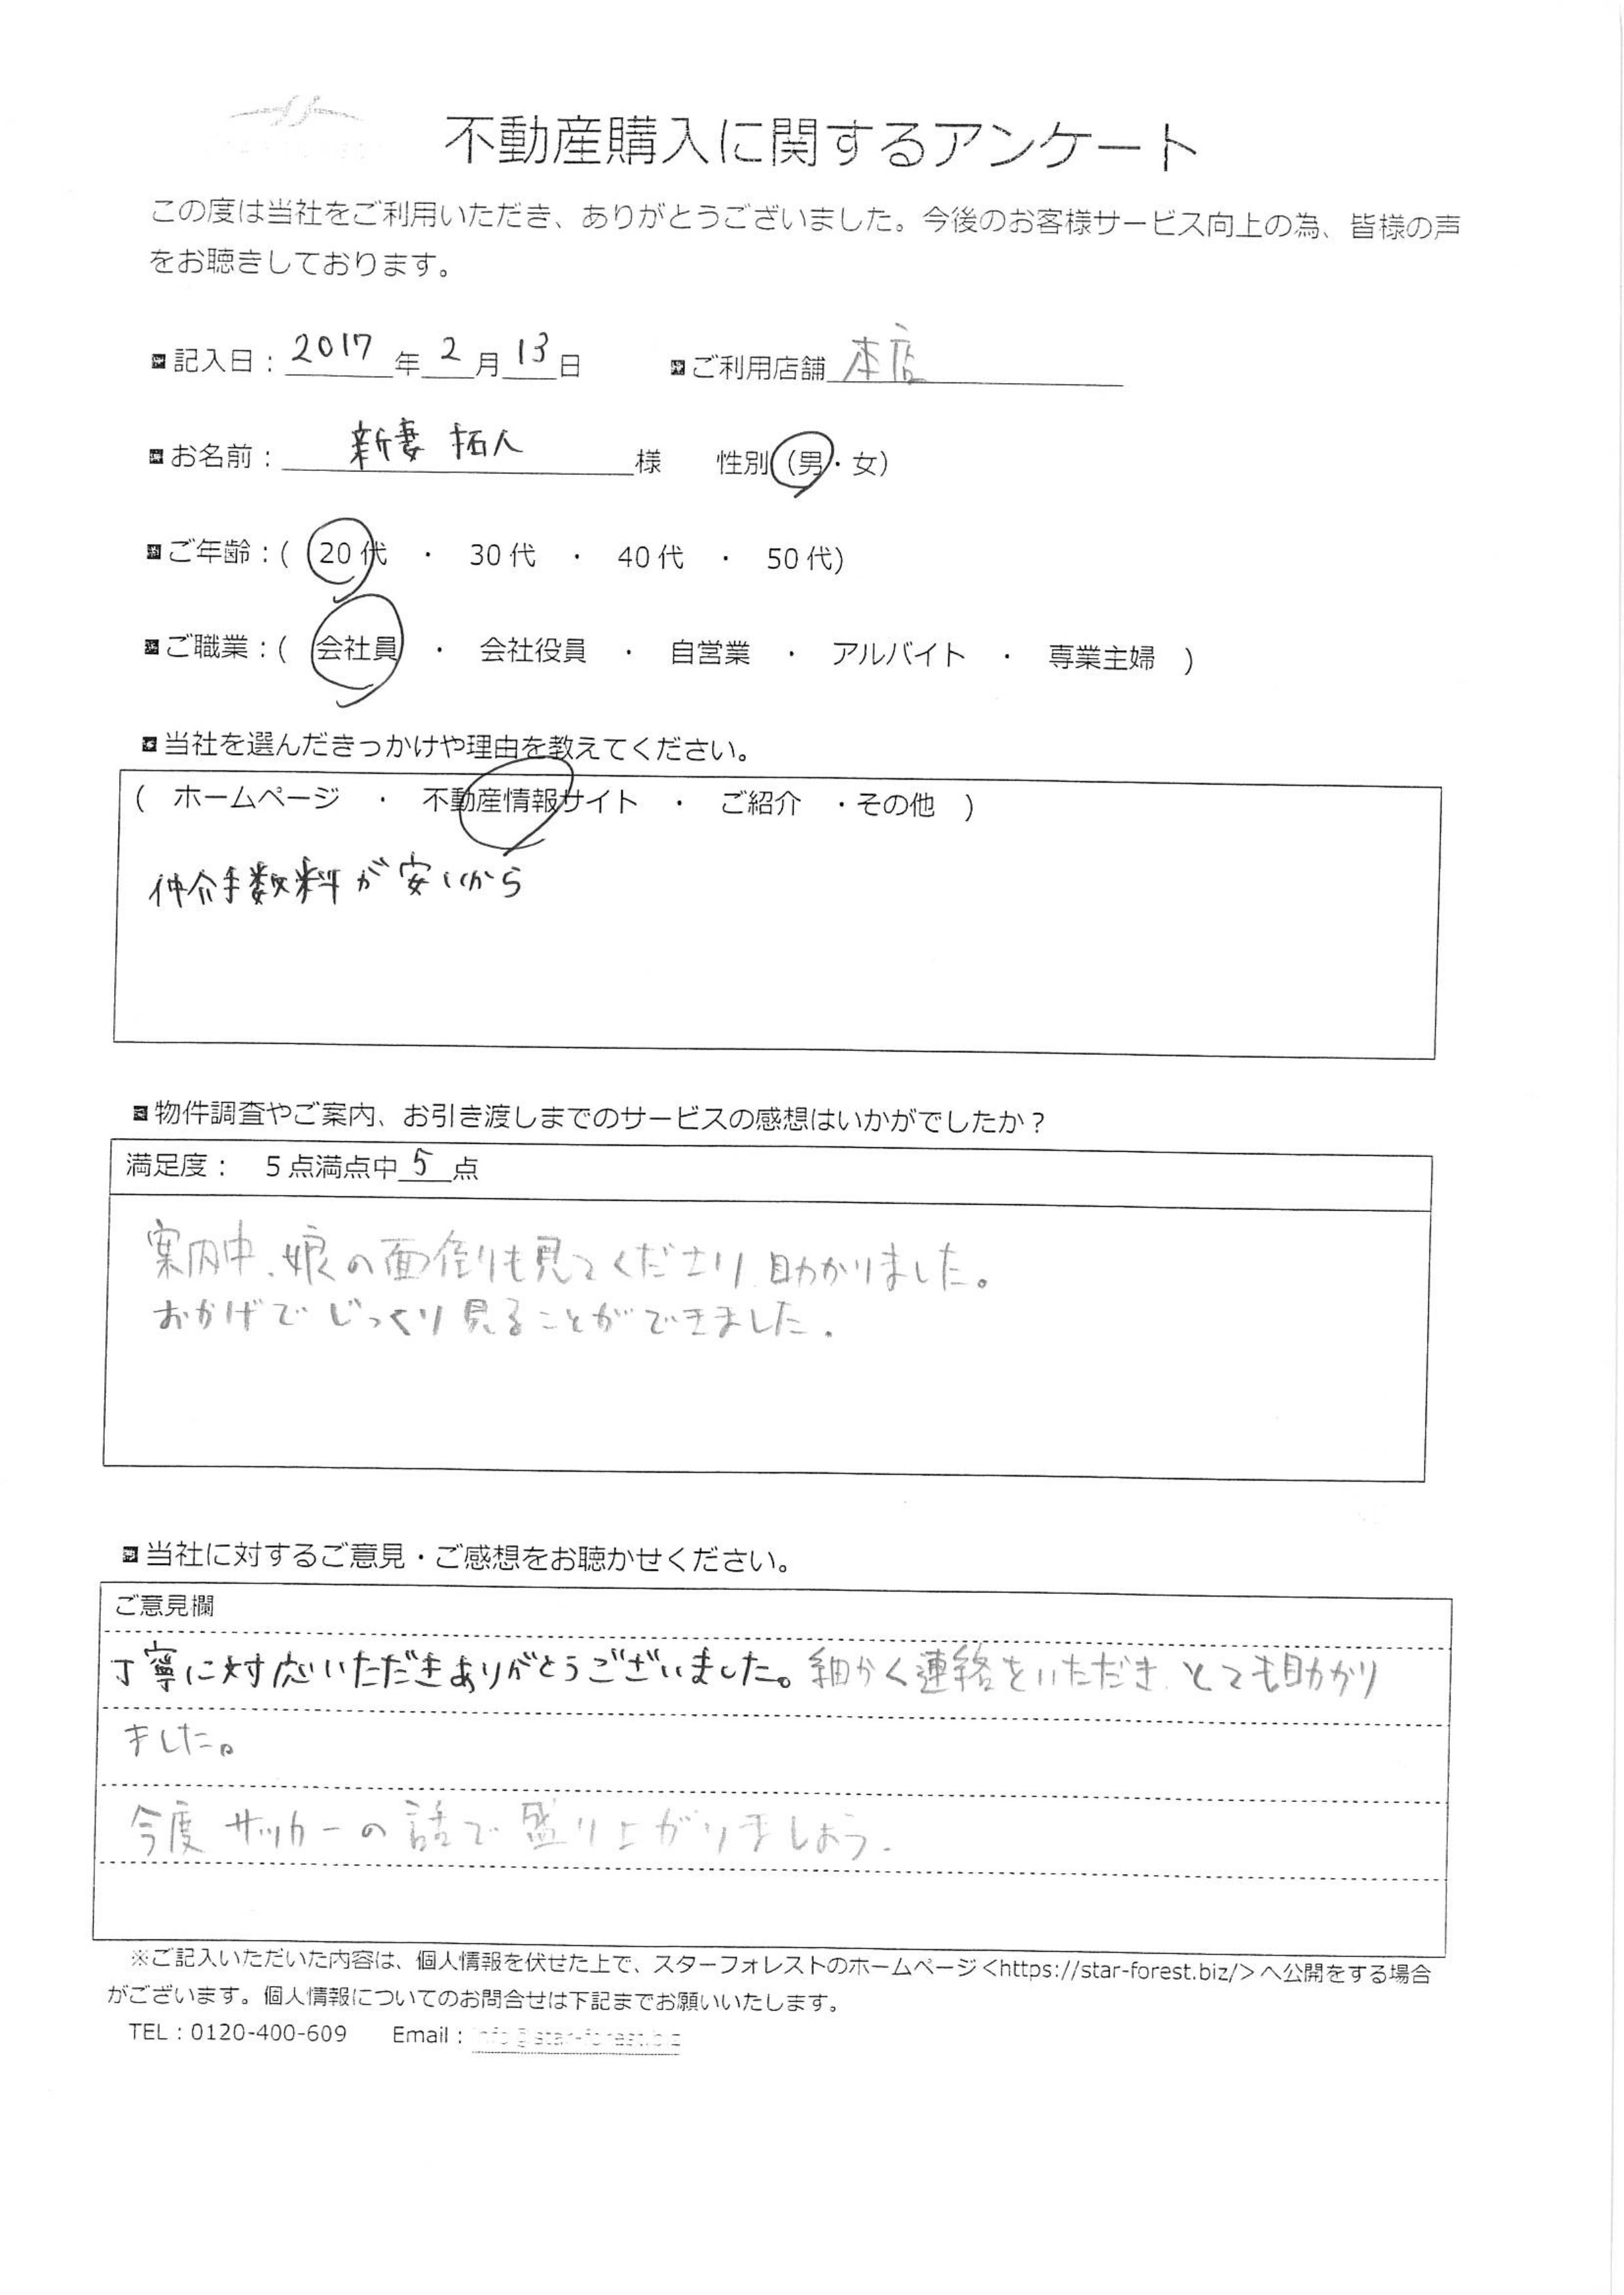 不動産購入に関するアンケート
この度は当社をご利用いただき、ありがとうございました。今後のお客様サービス向上の為、皆様の声
をお聴きしております。
記入日：2017年2月13日 ご利用店舗 本店
お名前：新妻 拓人 様 性別（男・女）
ご年齢：( 20代 ・ 30代 ・ 40代 ・ 50代)
ご職業：( 会社員 ・ 会社役員 ・ 自営業 ・ アルバイト ・ 専業主婦 )
当社を選んだきっかけや理由を教えてください。
( ホームページ ・ 不動産情報サイト ・ ご紹介 ・その他 )
仲介手数料が安いから
物件調査やご案内、お引き渡しまでのサービスの感想はいかがでしたか？
満足度： 5点満点中 5 点
案内中、娘の面倒も見てくださり、助かりました。
おかげでじっくり見ることができました。
当社に対するご意見・ご感想をお聴かせください。
ご意見欄
丁寧に対応いただきありがとうございました。細かく連絡をいただき、とても助かり
ました。
今度サッカーの話で盛り上がりましょう。
※ご記入いただいた内容は、個人情報を伏せた上で、スターフォレストのホームページ<https://star-forest.biz/>へ公開をする場合
がございます。個人情報についてのお問合せは下記までお願いいたします。
TEL：0120-400-609 Email：info@star-forest.biz